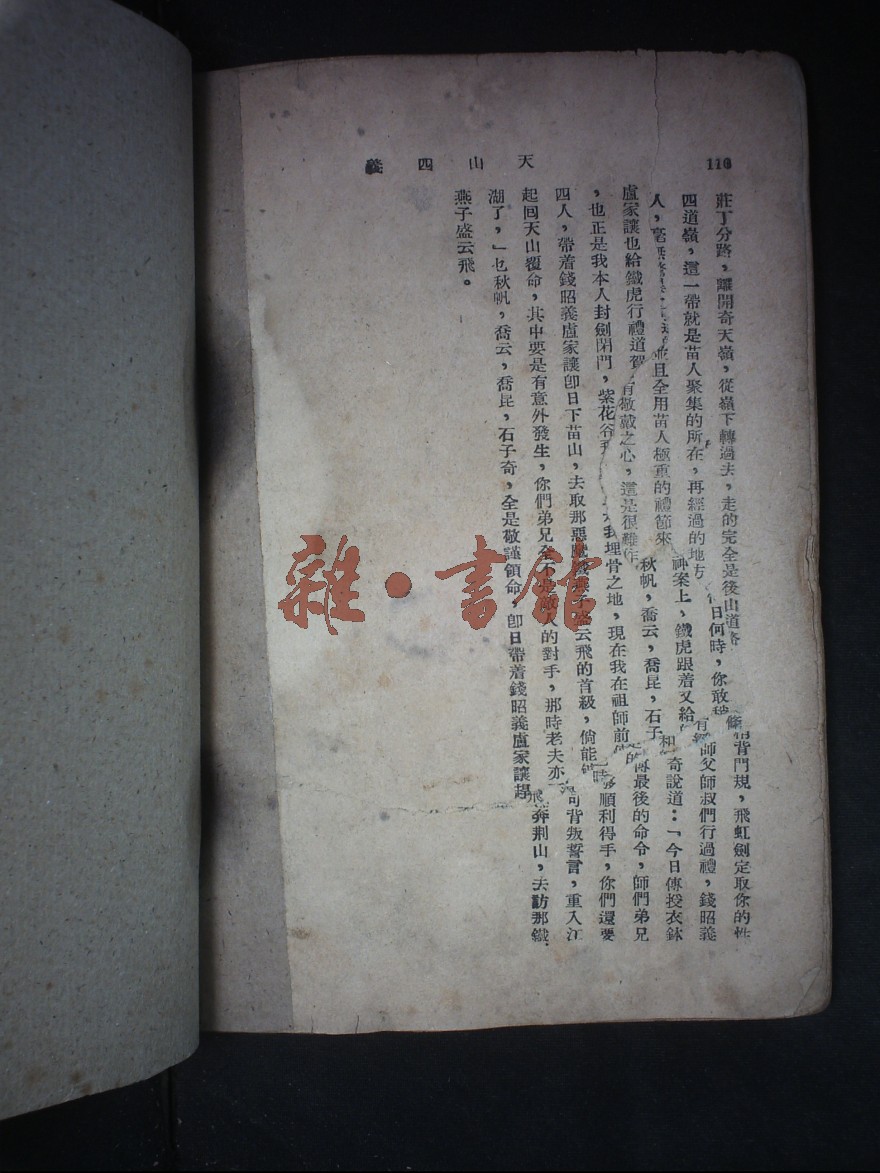 天山四義
莊丁分路,離開奇天嶺,從嶺下轉過去,走的完全是後山道
四道嶺,這一帶就是苗人聚集的所在,再經過的地方日何時,你敢稍背門規,飛虹劍定取你的性
人,毫並且全用苗人極重的禮節來神案上,鐵虎跟着又給師父師叔們行過禮,錢昭義
盧家讓也給鐵虎行禮道賀有敬戴之心,這是很難作秋帆,喬云,喬昆,石子奇說道:「今日傳授衣鉢
,也正是我本人封劍閉門,紫花谷我埋骨之地,現在我在祖師前傳最後的命令,師們弟兄
四人,帶着錢昭義盧家讓卽日下苗山,去取那惡魔鐵燕子盛云飛的首級,倘能順利得手,你們還要
起回天山覆命,其中要是有意外發生,你們弟兄全不是敵人的對手,那時老夫亦句背叛誓言,重入江
湖了,」乜秋帆,喬云,喬昆,石子奇,全是敬謹領命,卽日帶着錢昭義盧家讓趕奔荆山,去訪那鐵
燕子盛云飛。
雜·書舘